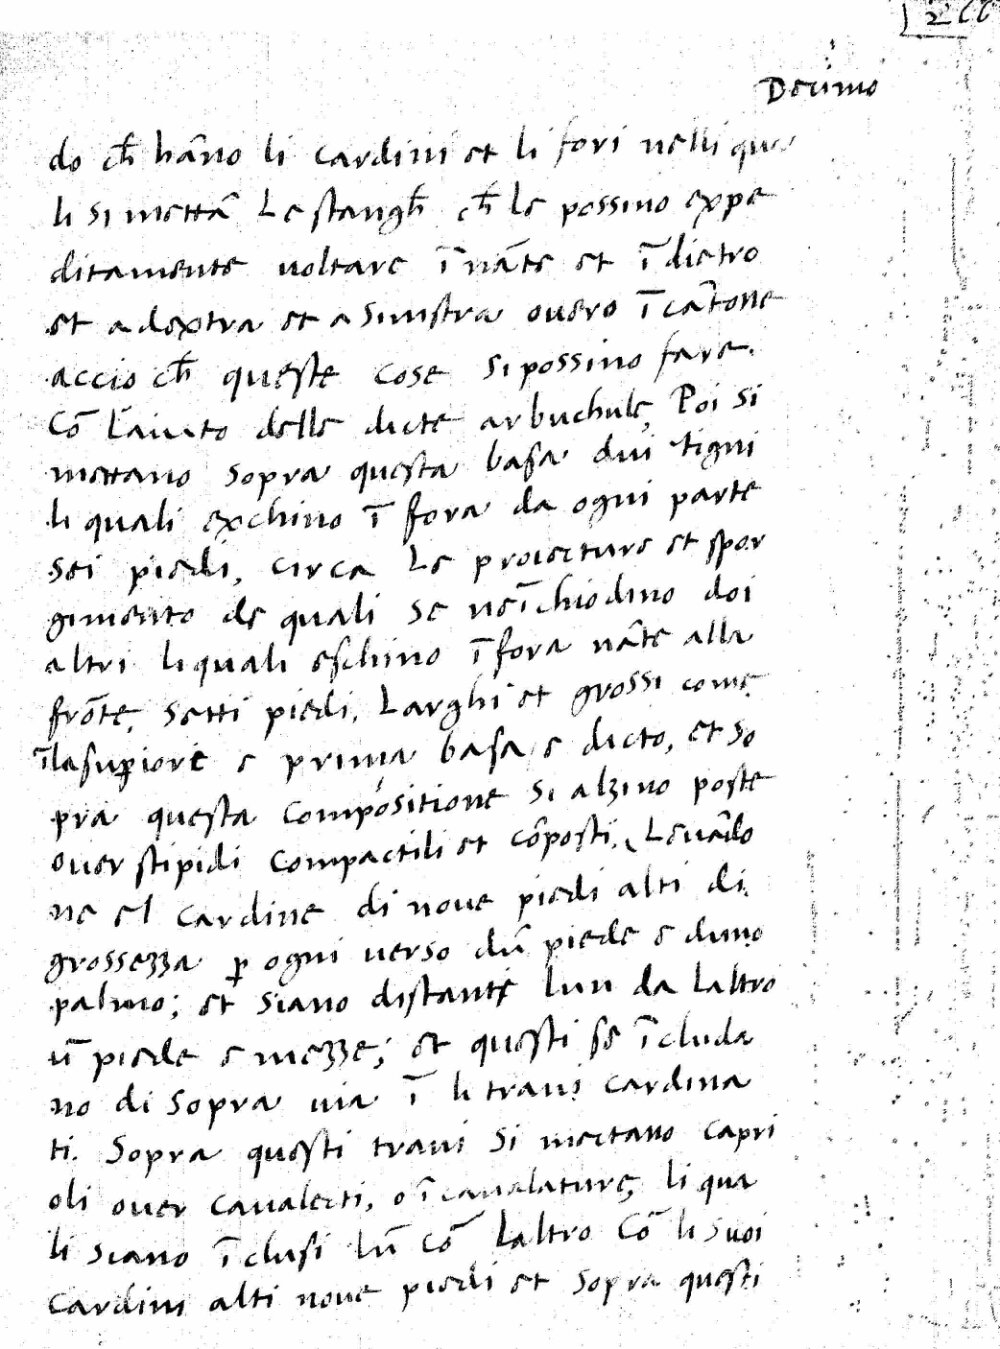 266
Decimo
do ch̄ hãno li cardini et li fori nelli qua
li si mettã Le stangh̄ ch̄ le possino expe
ditamente voltare ĩ nãte et ĩ dietro
et a dextra et a sinistra overo ĩ cãtone
accio ch̄ queste cose si possino fare.
Cõ l'aiuto delle dicte arbuchule, Poi si
mettano sopra questa basa dui tigni
li quali exchino ĩ fora da ogni parte
sei piedi, circa Le proiecture et spor
gimento de quali se neĩchiodino doi
altri li quali eschino ĩ fora nãte alla
frõte, setti piedi, Larghi et grossi come
ĩ la sup̄iore e prima basa e dicto, et so
pra questa compositione si alzino poste
over stipidi compactili et cõposti, Levãdo
ne el cardine di nove piedi alti di
grossezza p̄ ogni verso dũ piede e duno
palmo; et siano distanti lun da laltro
ũ piede e mezze; et questi se ĩcluda
no di sopra via ĩ li travi cardina
ti. Sopra questi travi si mectano capri
oli over cavalecti, o ĩcavalature, li qua
li siano ĩclusi lũ cõ laltro cõ li suoi
cardini alti nove piedi et sopra questi